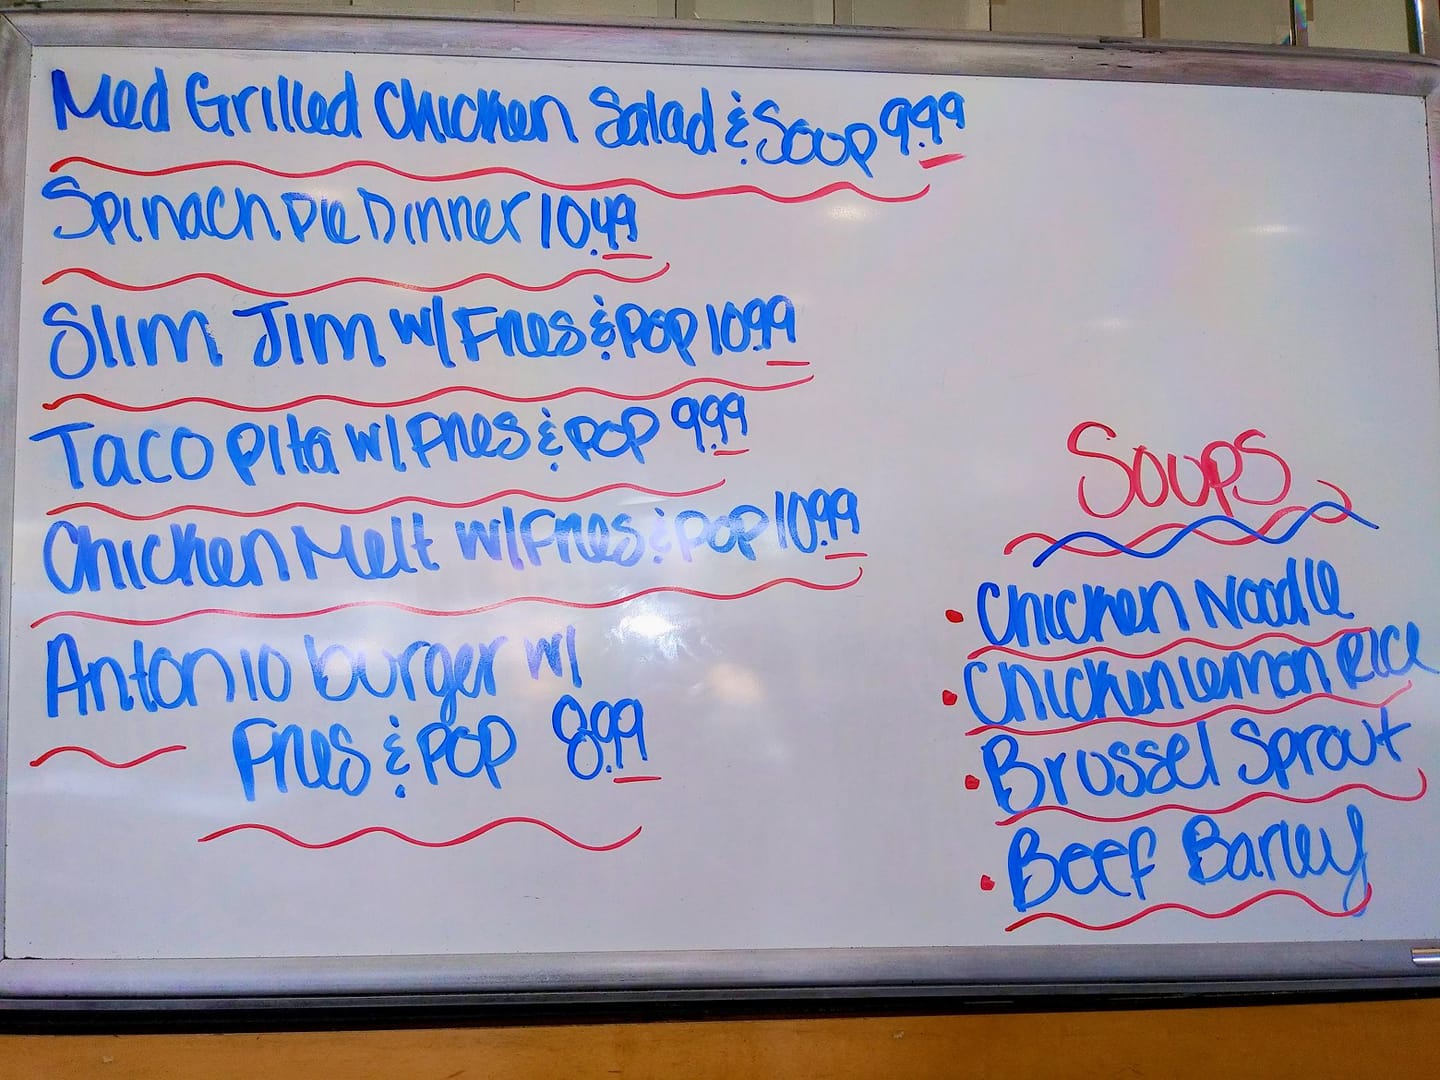 Med Grilled Chicken Salad & Soup 9.99
Spinach Pie Dinner 10.49
Slim Jim w/ Fries & Pop 10.99
Taco Pita w/ Fries & Pop 9.99
Chicken Melt w/ Fries & Pop 10.99
Antonio burger w/
Fries & Pop 8.99
Soups
• Chicken Noodle
• Chicken Lemon Rice
• Brussel Sprout
• Beef Barley